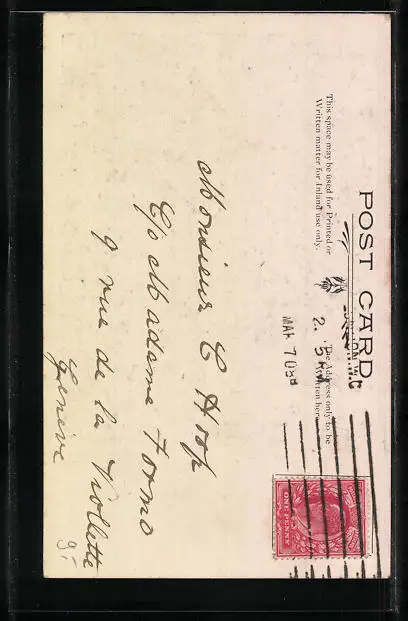 POST CARD
This space may be used for Printed or
Written matter for Inland use only.
The Address only to be
Written here
LONDON. W.C
2.
MAR 7 03
ONE PENNY
Monsieur C Hoop
C/o Madame Formo
9 rue de la Violette
Genève
9.-